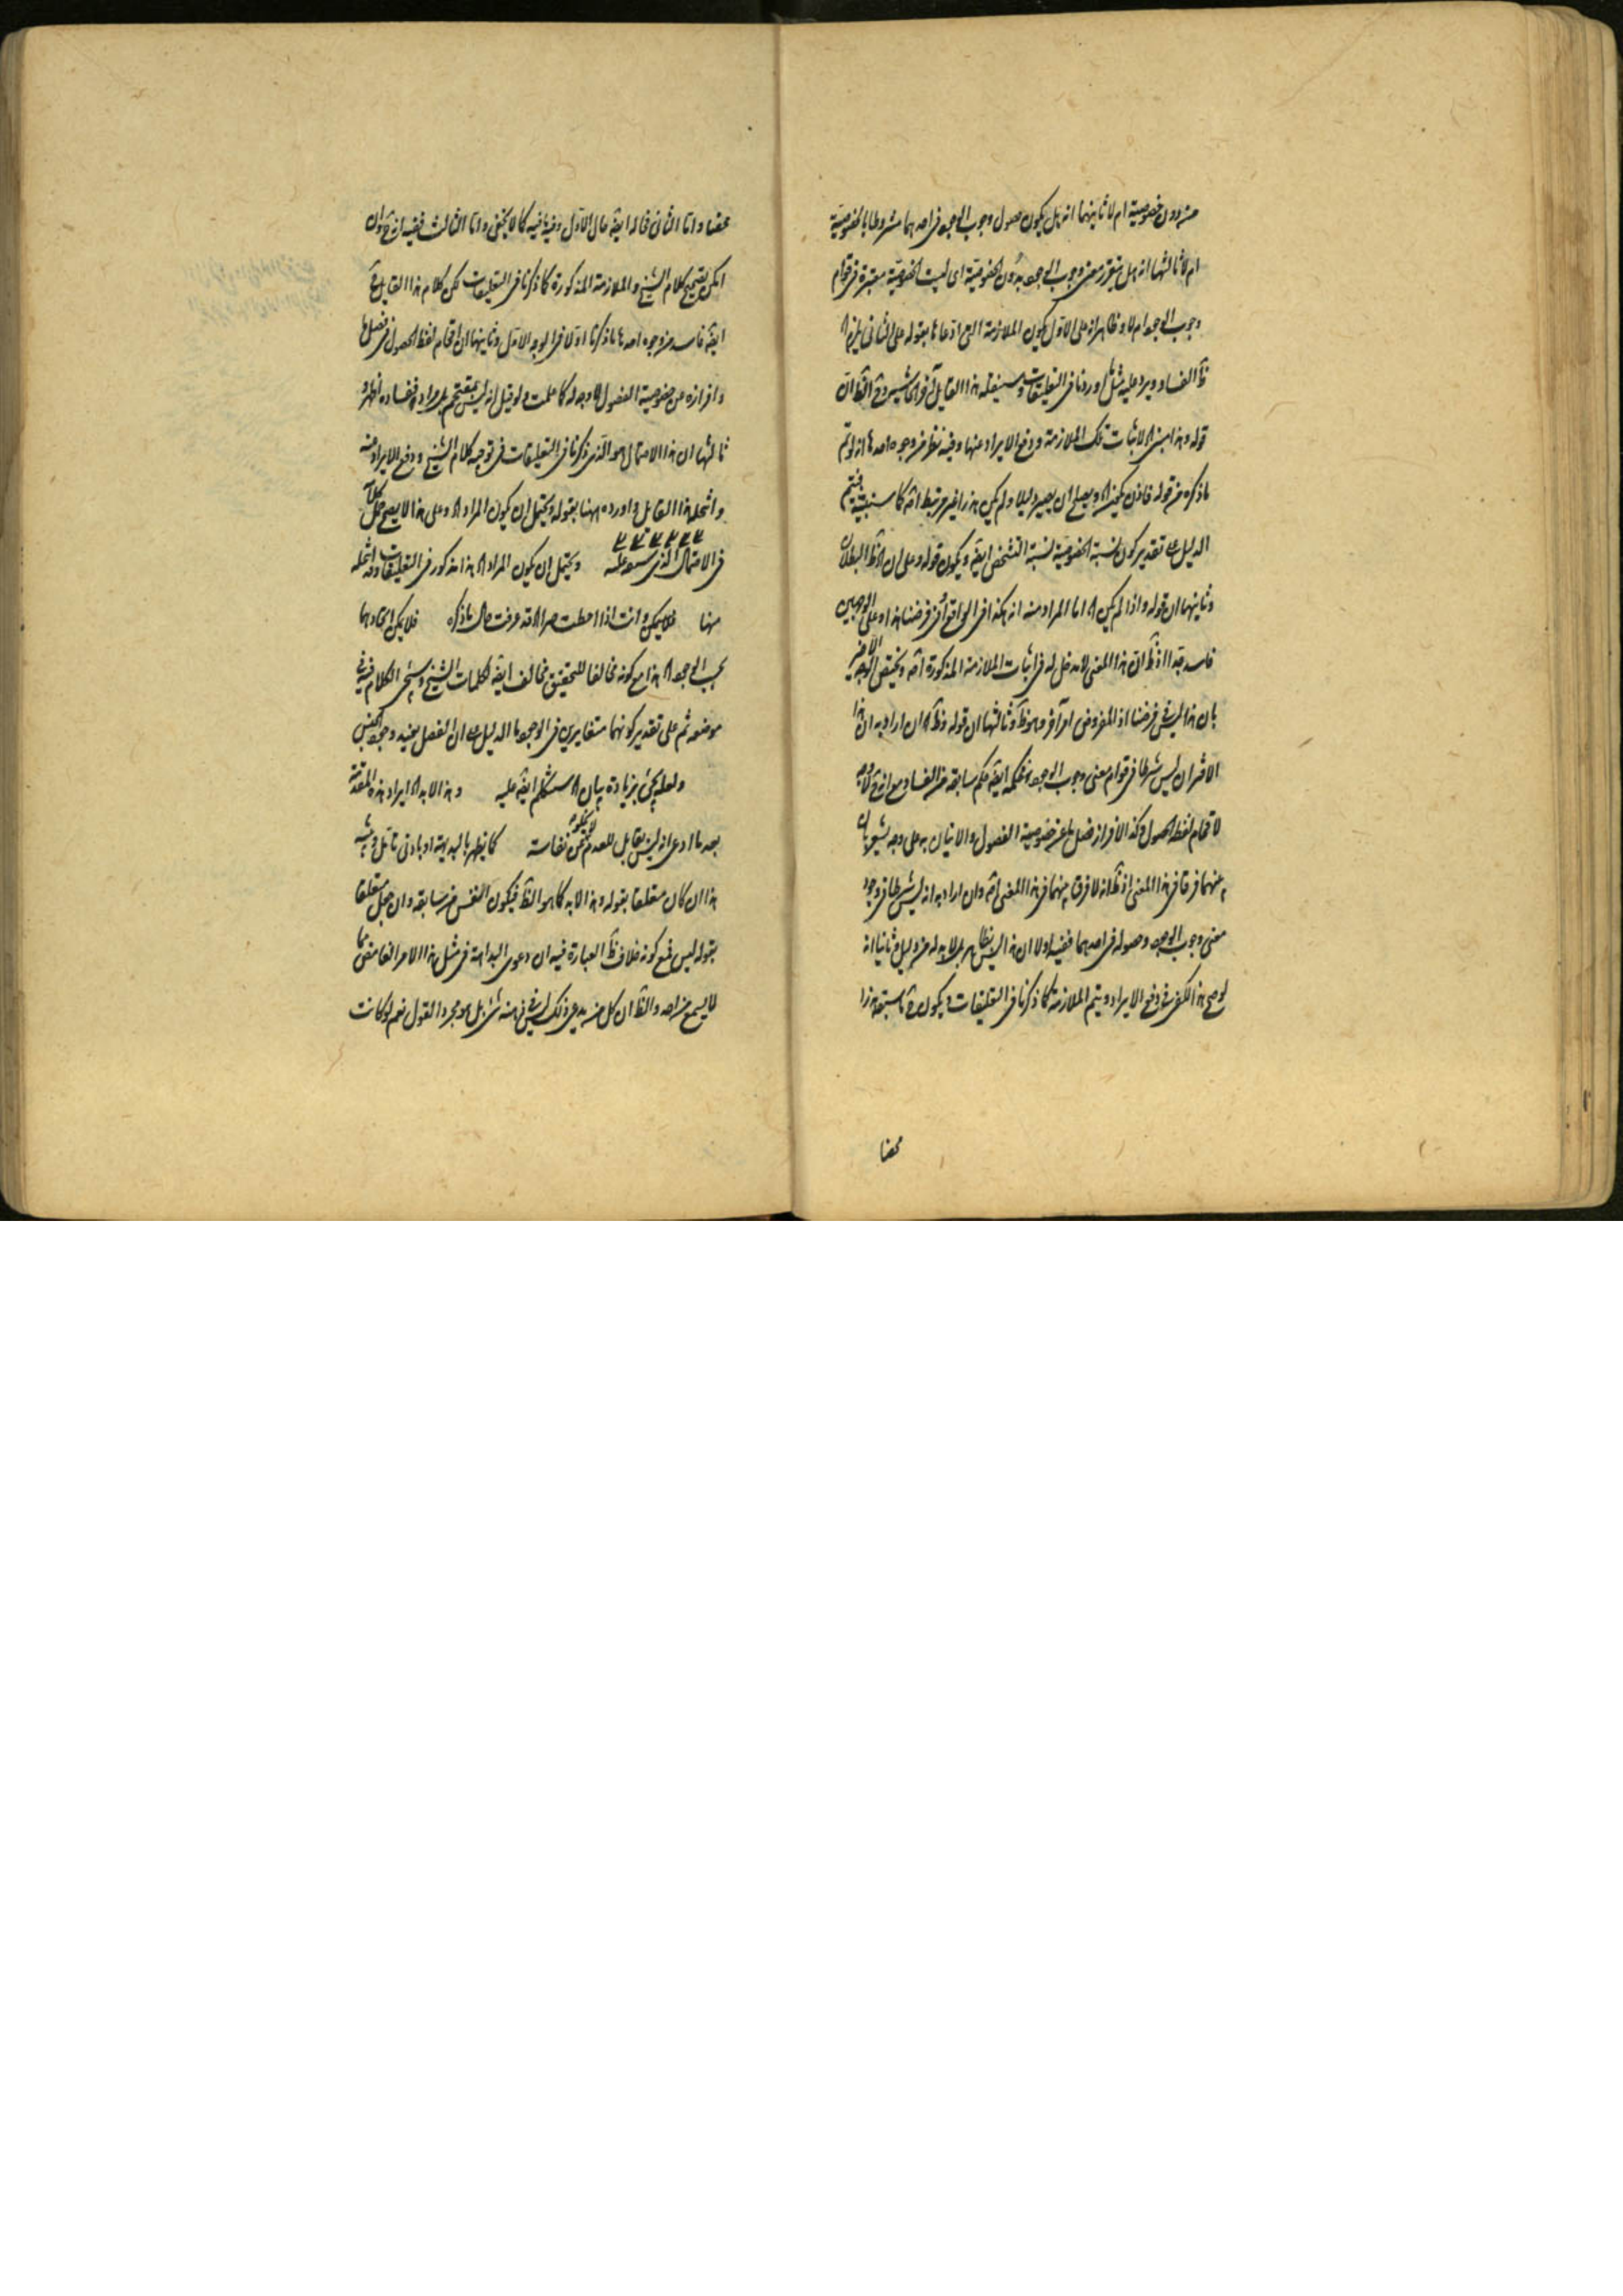 من دون خصوصية ام لا ثانيهما انه هل يكون حصول وجوب الوجود فى احدهما مشروطا بالخصوصية
ام لا ثالثها انه هل يتقرر معنى وجوب الوجود بدون الخصوصية اى ليست الخصوصية معتبرة فى قوام
وجوب الوجود ام لا وظاهر انه على الاول يكون الملازمة التى ادعاها بقوله على الثانى يلزم اه
ظ الفساد ويرد عليه مثل ما اوردنا فى التعليقات وسينقله هذا القايل فى آخر الحاشية وح الظ ان
قوله وهذا اه لاثبات تلك الملازمة ودفع الايراد عنها وفيه نظر من وجوه احدها انه لو تم
ما ذكره من قوله فاذن اه ويصلح ان يصير دليلا ولم يكن هذرا غير مرتبط اصه كما سنبينه فيتم
الدليل على تقدير كون نسبة الخصوصية نسبة التشخص ايضه ويكون قوله وعلى ان اه ظ البطلان
وثانيهما ان قوله واذا لم يكن اه اما المراد منه انه هكذا فى الواقع او فى فرضنا هذا وعلى الوجهين
فاسد جدا اذ ظ ان هذا المعنى لا دخل له فى اثبات الملازمة المذكورة اصه ويختص الوجه الاخير
بان هذا ليس فى فرضنا اذ المفروض امر آخر وهو ظ وثالثها ان قوله وظ اه ان اراد به ان هذا
الاقتران ليس شرطا فى قوام معنى وجوب الوجود فحكمه ايضه حكم سابقه من الفساد مع انه ح لا وجه
لاقحام لفظ الحصول وكذا لافراز فصل ما عن خصوصية الفصول والاتيان به على وجه يشعر بان
بينهما فرقا فى هذا المعنى اذ ظ انه لا فرق بينهما فى هذا المعنى اصه وان اراد به انه ليس شرطا فى وجود
معنى وجوب الوجود وحصوله فى احدهما ففيه اولا ان هذا ليس بظاهر بل لا بد له من دليل وثانيا انه
لو صح هذا لكفى فى دفع الايراد ويتم الملازمة كما ذكرنا فى التعليقات فيكون ما سبقه هذرا
محضا
محضا واما الثانى فحاله ايضه حال الاول وفيه ما فيه كما لا يخفى واما الثالث ففيه انه ح وان
امكن تصحيح كلام الشيخ والملازمة المذكورة كما ذكرنا فى التعليقات لكن كلام هذا القايل ح
ايضه فاسد من وجوه احدها ما ذكرنا اولا فى الوجه الاول وثانيهما ان اقحام لفظ الحصول فى فصل ما
وافرازه عن خصوصية الفصول لا وجه له كما علمت ولو قيل انه ليس بمقحم بل مراد ففساده اظهر و
ثالثها ان هذا الاحتمال هو الذى ذكرنا فى التعليقات فى توجيه كلام الشيخ ودفع الايراد منه
وانتحله هذا القايل واورده ههنا بقوله ويحتمل ان يكون المراد اه وعلى هذا لا يصح
فى الاحتمال الذى ويحتمل ان يكون المراد اه هذا مذكور فى التعليقات وقد انتحله
ههنا فلا يمكن وانت اذا احطت خبرا اه قد عرفت حال ما ذكره فلا يمكن اتحادهما
بحسب الوجود اه هذا مع كونه مخالفا للتحقيق مخالف ايضه لكلمات الشيخ وسيجئ الكلام فيه فى
موضعه ثم على تقدير كونهما متغايرين فى الوجود ما الدليل على ان الفصل يفيد وجود الجنس
ولعله يجئ بزيادة بيان اه سنتكلم ايضه عليه وهذا لا بد اه ايراد هذه المقدمة
بعد ما ادعى انه ليس بقابل للعدم نفاسته كما يظهر بالبديهة او بادنى تامل
هذا ان كان متعلقا بقوله وهذا لا بد كما هو الظ فيكون انفس من سابقه وان جعل متعلقا
بقوله ليس فمع كونه خلاف ظ العبارة فيه ان دعوى البداهة فى مثل هذا الامر الغامض مما
لا يسمع من احد والظ ان كل من يدعى ذلك ليس فى ذهنه شئ بل هو مجرد القول نعم لو كانت